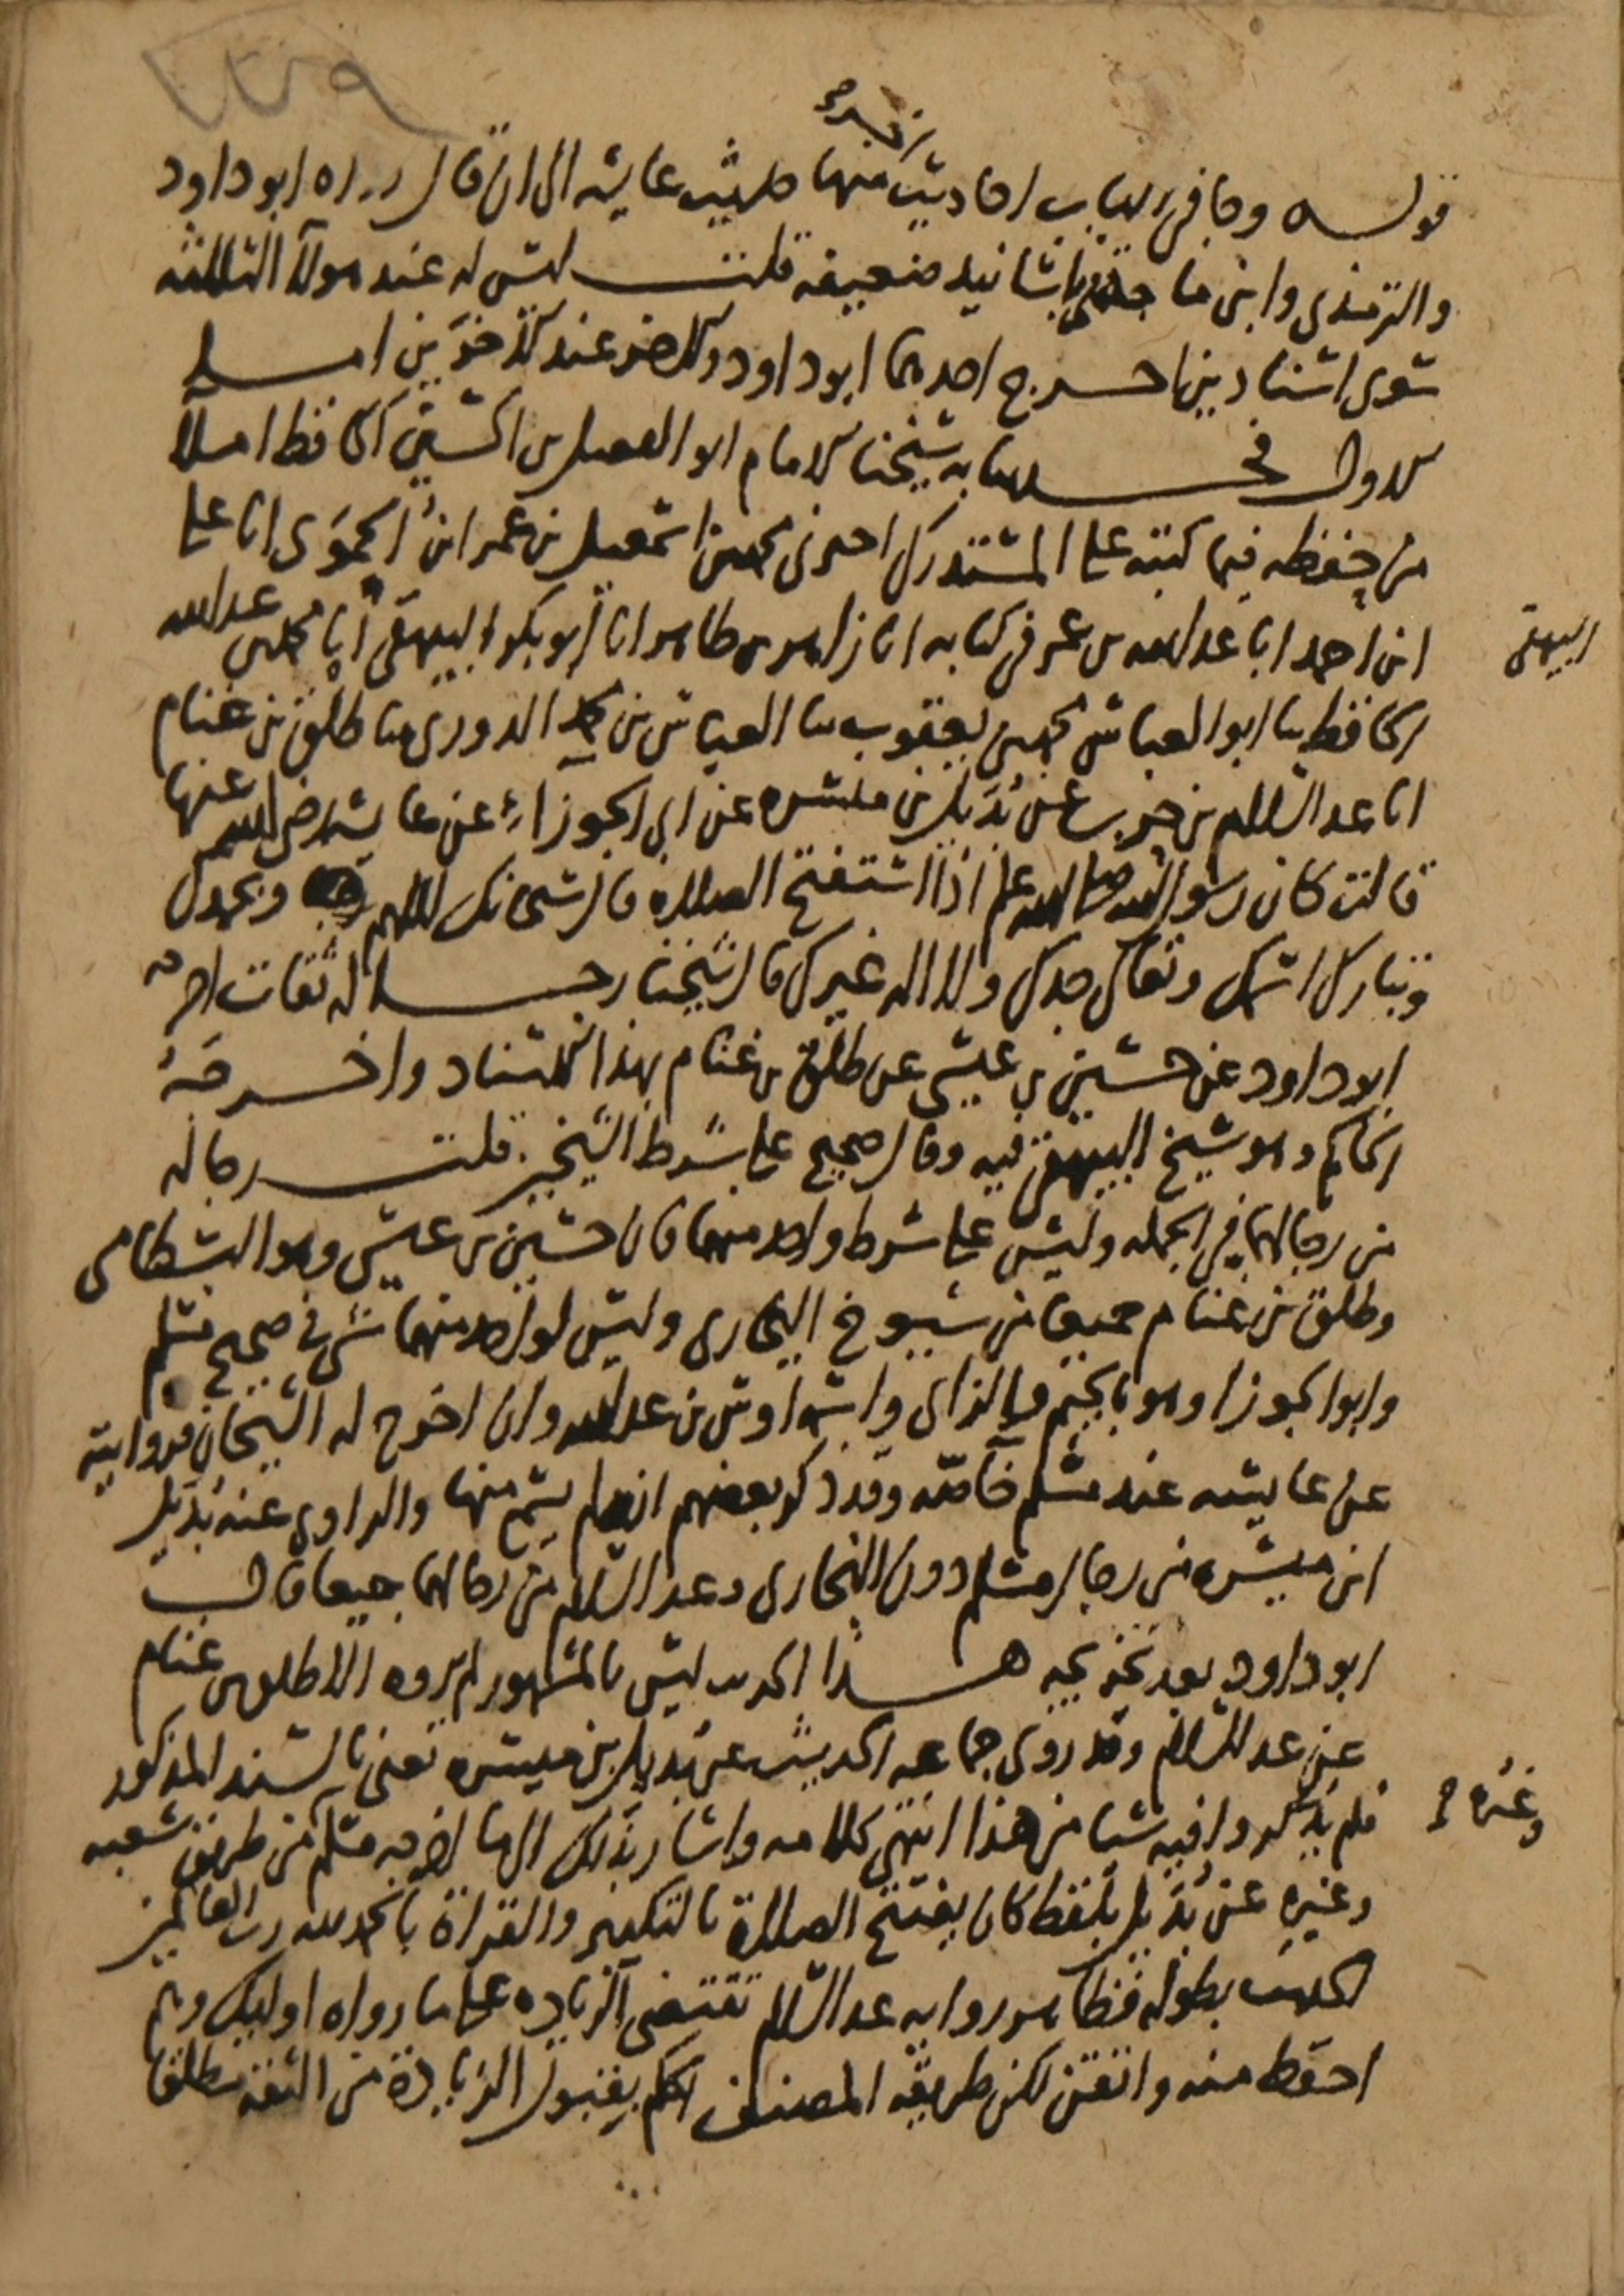 ٢٢٩
كثيرة صح
قوله وجا في الباب احاديث منها حديث عايشه الى ان قال رواه ابو داود
والترمذي وابن ماجة باسانيد ضعيفه قلت ليس له عند هولآ الثلاثه
سوى اسنادين اخرج احدهما ابو داود والاخر عند الاخرين اما
الاول فحدثنا به شيخنا الامام ابو الفضل بن الحسين الحافظ املآ
من حفظه فيما كتبه على المستدرك اخبرني محمد بن اسمعيل بن عمر ابن الحموي انا علي
ابن احمد انا عبد الله بن عمر في كتابه انا زاهر بن طاهر انا ابو بكر البيهقي انا محمد بن عبد الله
البيهقي
الحافظ ثنا ابو العباس محمد بن يعقوب ثنا العباس بن محمد الدوري ثنا طلق بن غنام
انا عبد السلام بن حرب عن بديل بن ميسره عن ابي الجوزاء عن عايشه رضي الله عنها
قالت كان رسول الله صلى الله عليه وسلم اذا استفتح الصلاه قال سبحانك اللهم وبحمدك
وتبارك اسمك وتعالى جدك ولا اله غيرك قال شيخنا رجاله ثقات اخرجه
ابو داود عن حسين بن عيسى عن طلق بن غنام بهذا الاسناد واخرجه
الحاكم وهو شيخ البيهقي فيه وقال صحيح على شرط الشيخين قلت رجاله
من رجالهما في الجمله وليس على شرط واحد منهما فان حسين بن عيسى وهو البسطامي
وطلق بن غنام جميعا من شيوخ البخاري وليس لواحد منهما شي في صحيح مسلم
وابو الجوزا وهو بالجيم والزاي واسمه اوس بن عبد الله وان اخرج له الشيخان فروايته
عن عايشه عند مسلم خاصّه وقد ذكر بعضهم انه لم يسمع منها والراوي عنه بديل
ابن ميسره من رجال مسلم دون البخاري وعبد السلام من رجالهما جميعا قال
ابو داود بعد تخريجه هذا الحديث ليس بالمشهور لم يروه الا طلق بن غنام
عن عبد السلام وقد روى جماعه الحديث عن بديل بن ميسره يعني بالسند المذكور
وغيره صح
فلم يذكروا فيه شيا من هذا انتهى كلامه واشار بذلك الى ما اخرجه مسلم من طريق شعبه
وغيره عن بديل بلفظ كان يفتتح الصلاة بالتكبير والقراة بالحمد لله رب العالمين
الحديث بطوله فظاهر روايه عبد السلام تقتضي الزياده على ما رواه اوليك وهم
احفظ منه واتقن لكن طريقه المصنف الحكم بقبول الزيادة من الثقه مطلقا